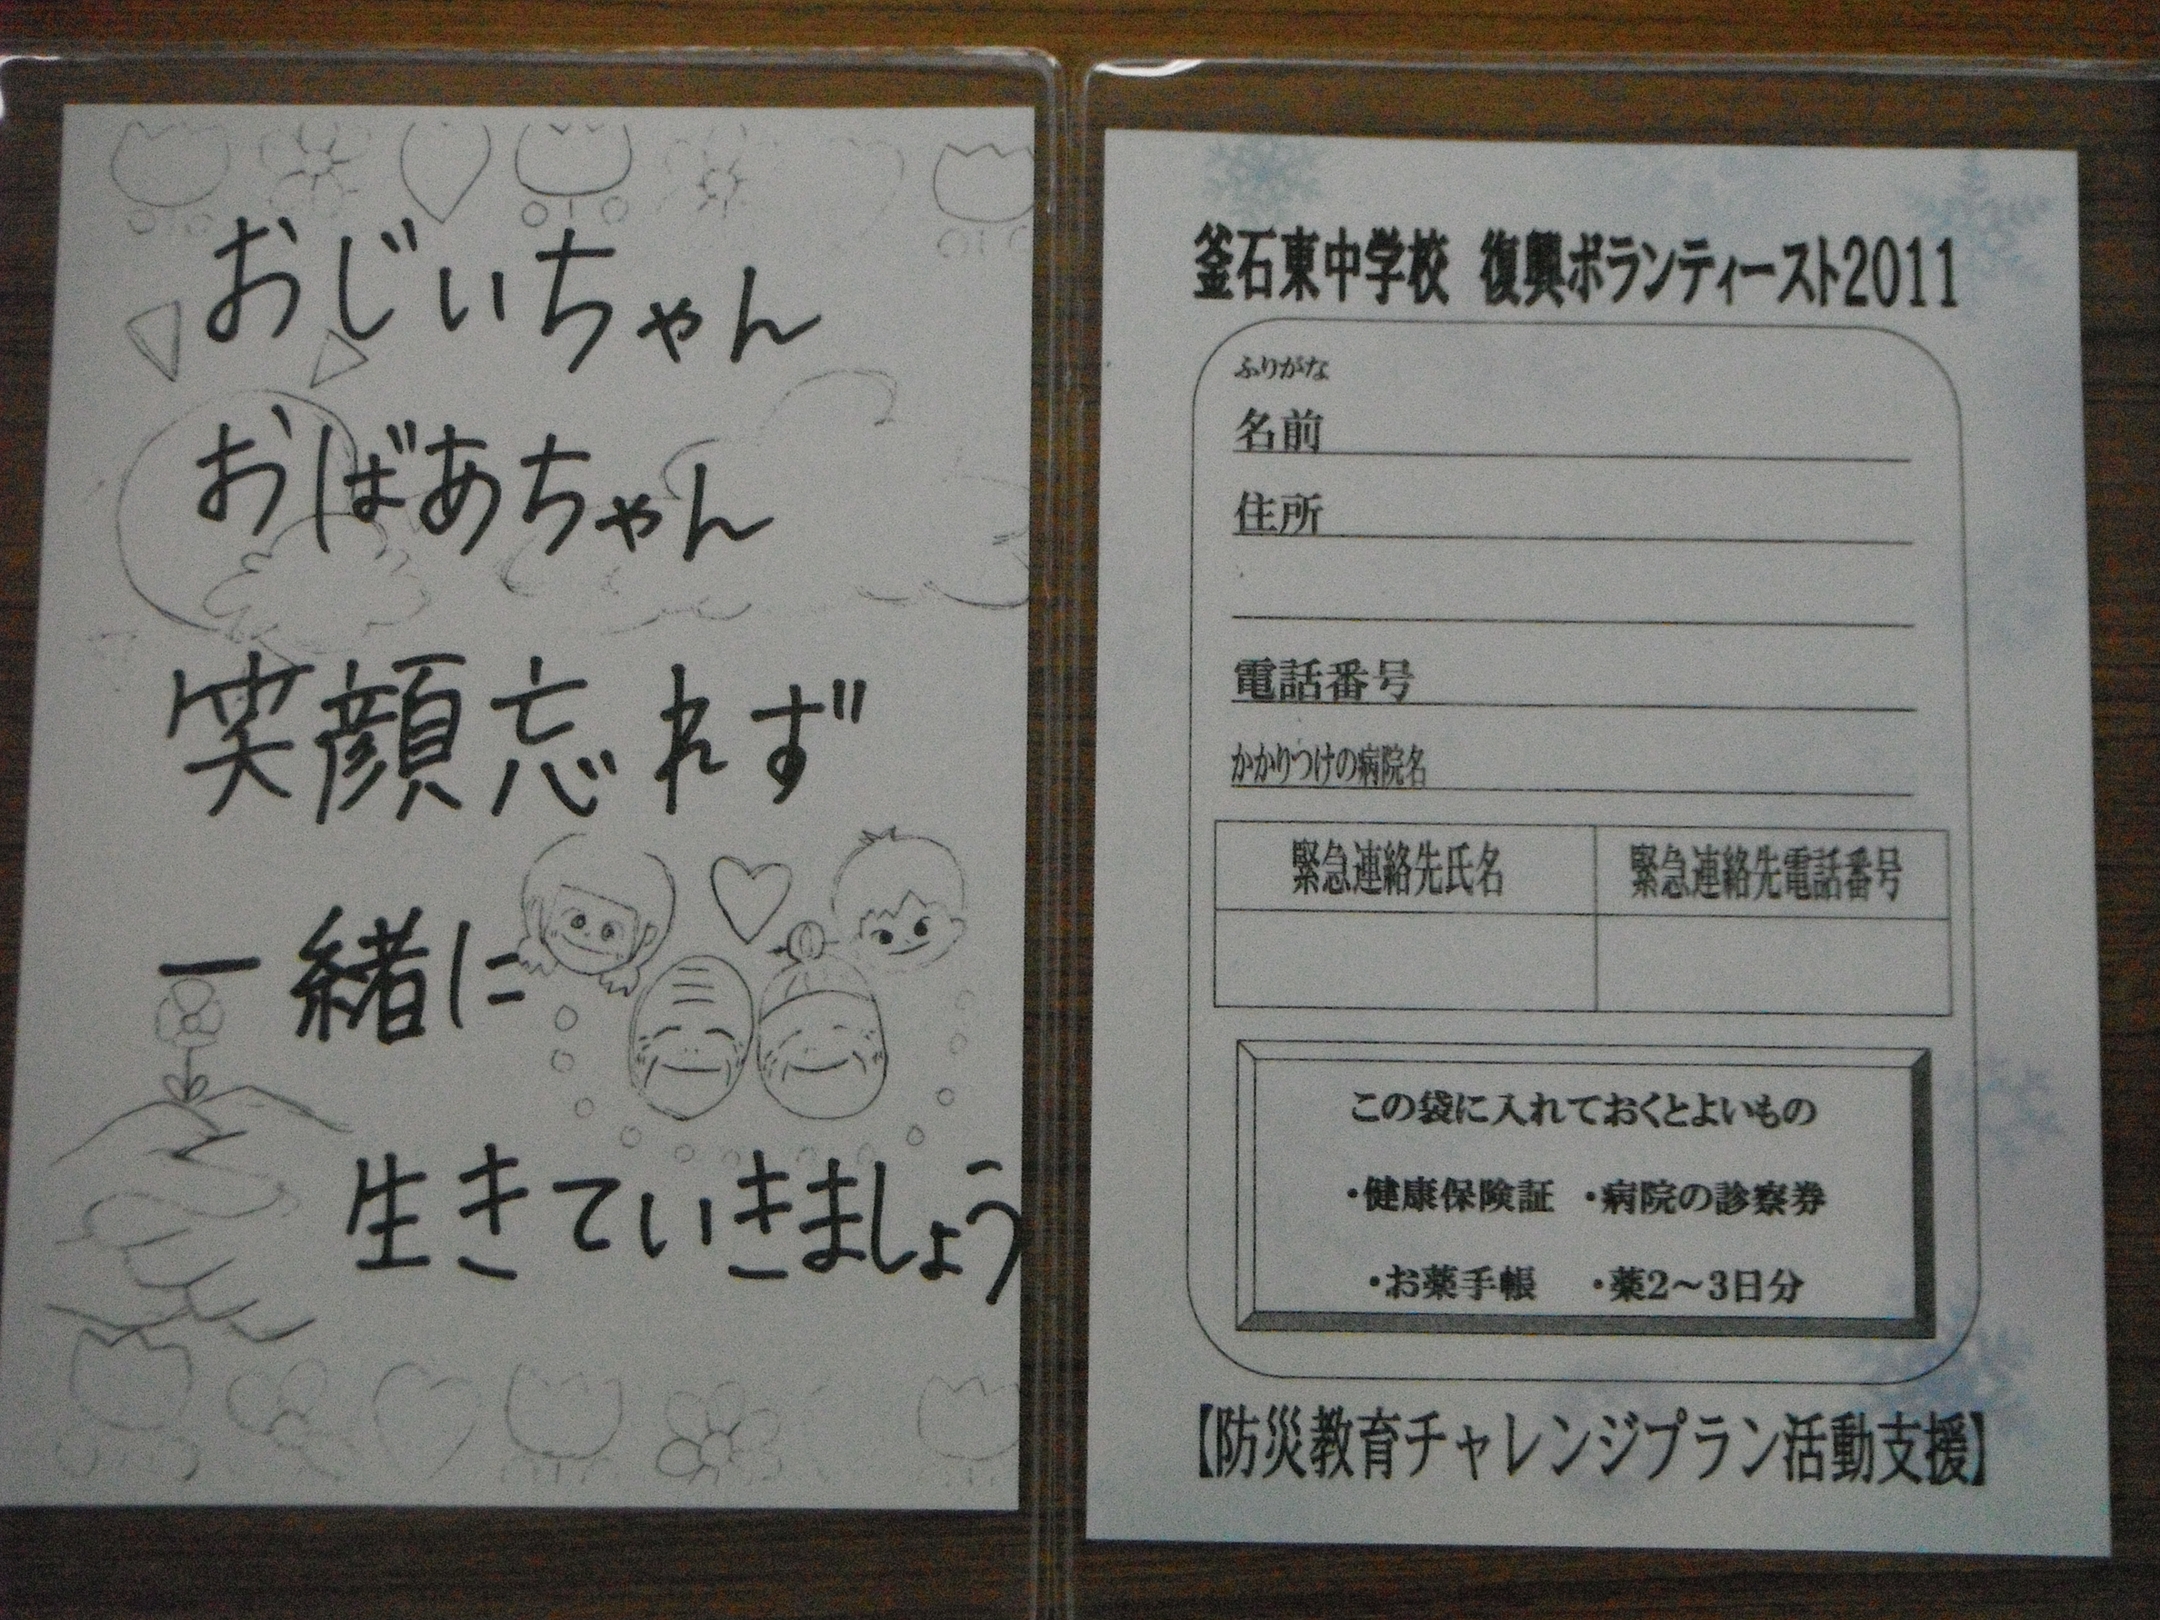 おじいちゃん
おばあちゃん
笑顔忘れず
一緒に
生きていきましょう
釜石東中学校 復興ボランティースト2011
ふりがな
名前
住所
電話番号
かかりつけの病院名
緊急連絡先氏名 緊急連絡先電話番号
この袋に入れておくとよいもの
・健康保険証 ・病院の診察券
・お薬手帳 ・薬2~3日分
【防災教育チャレンジプラン活動支援】